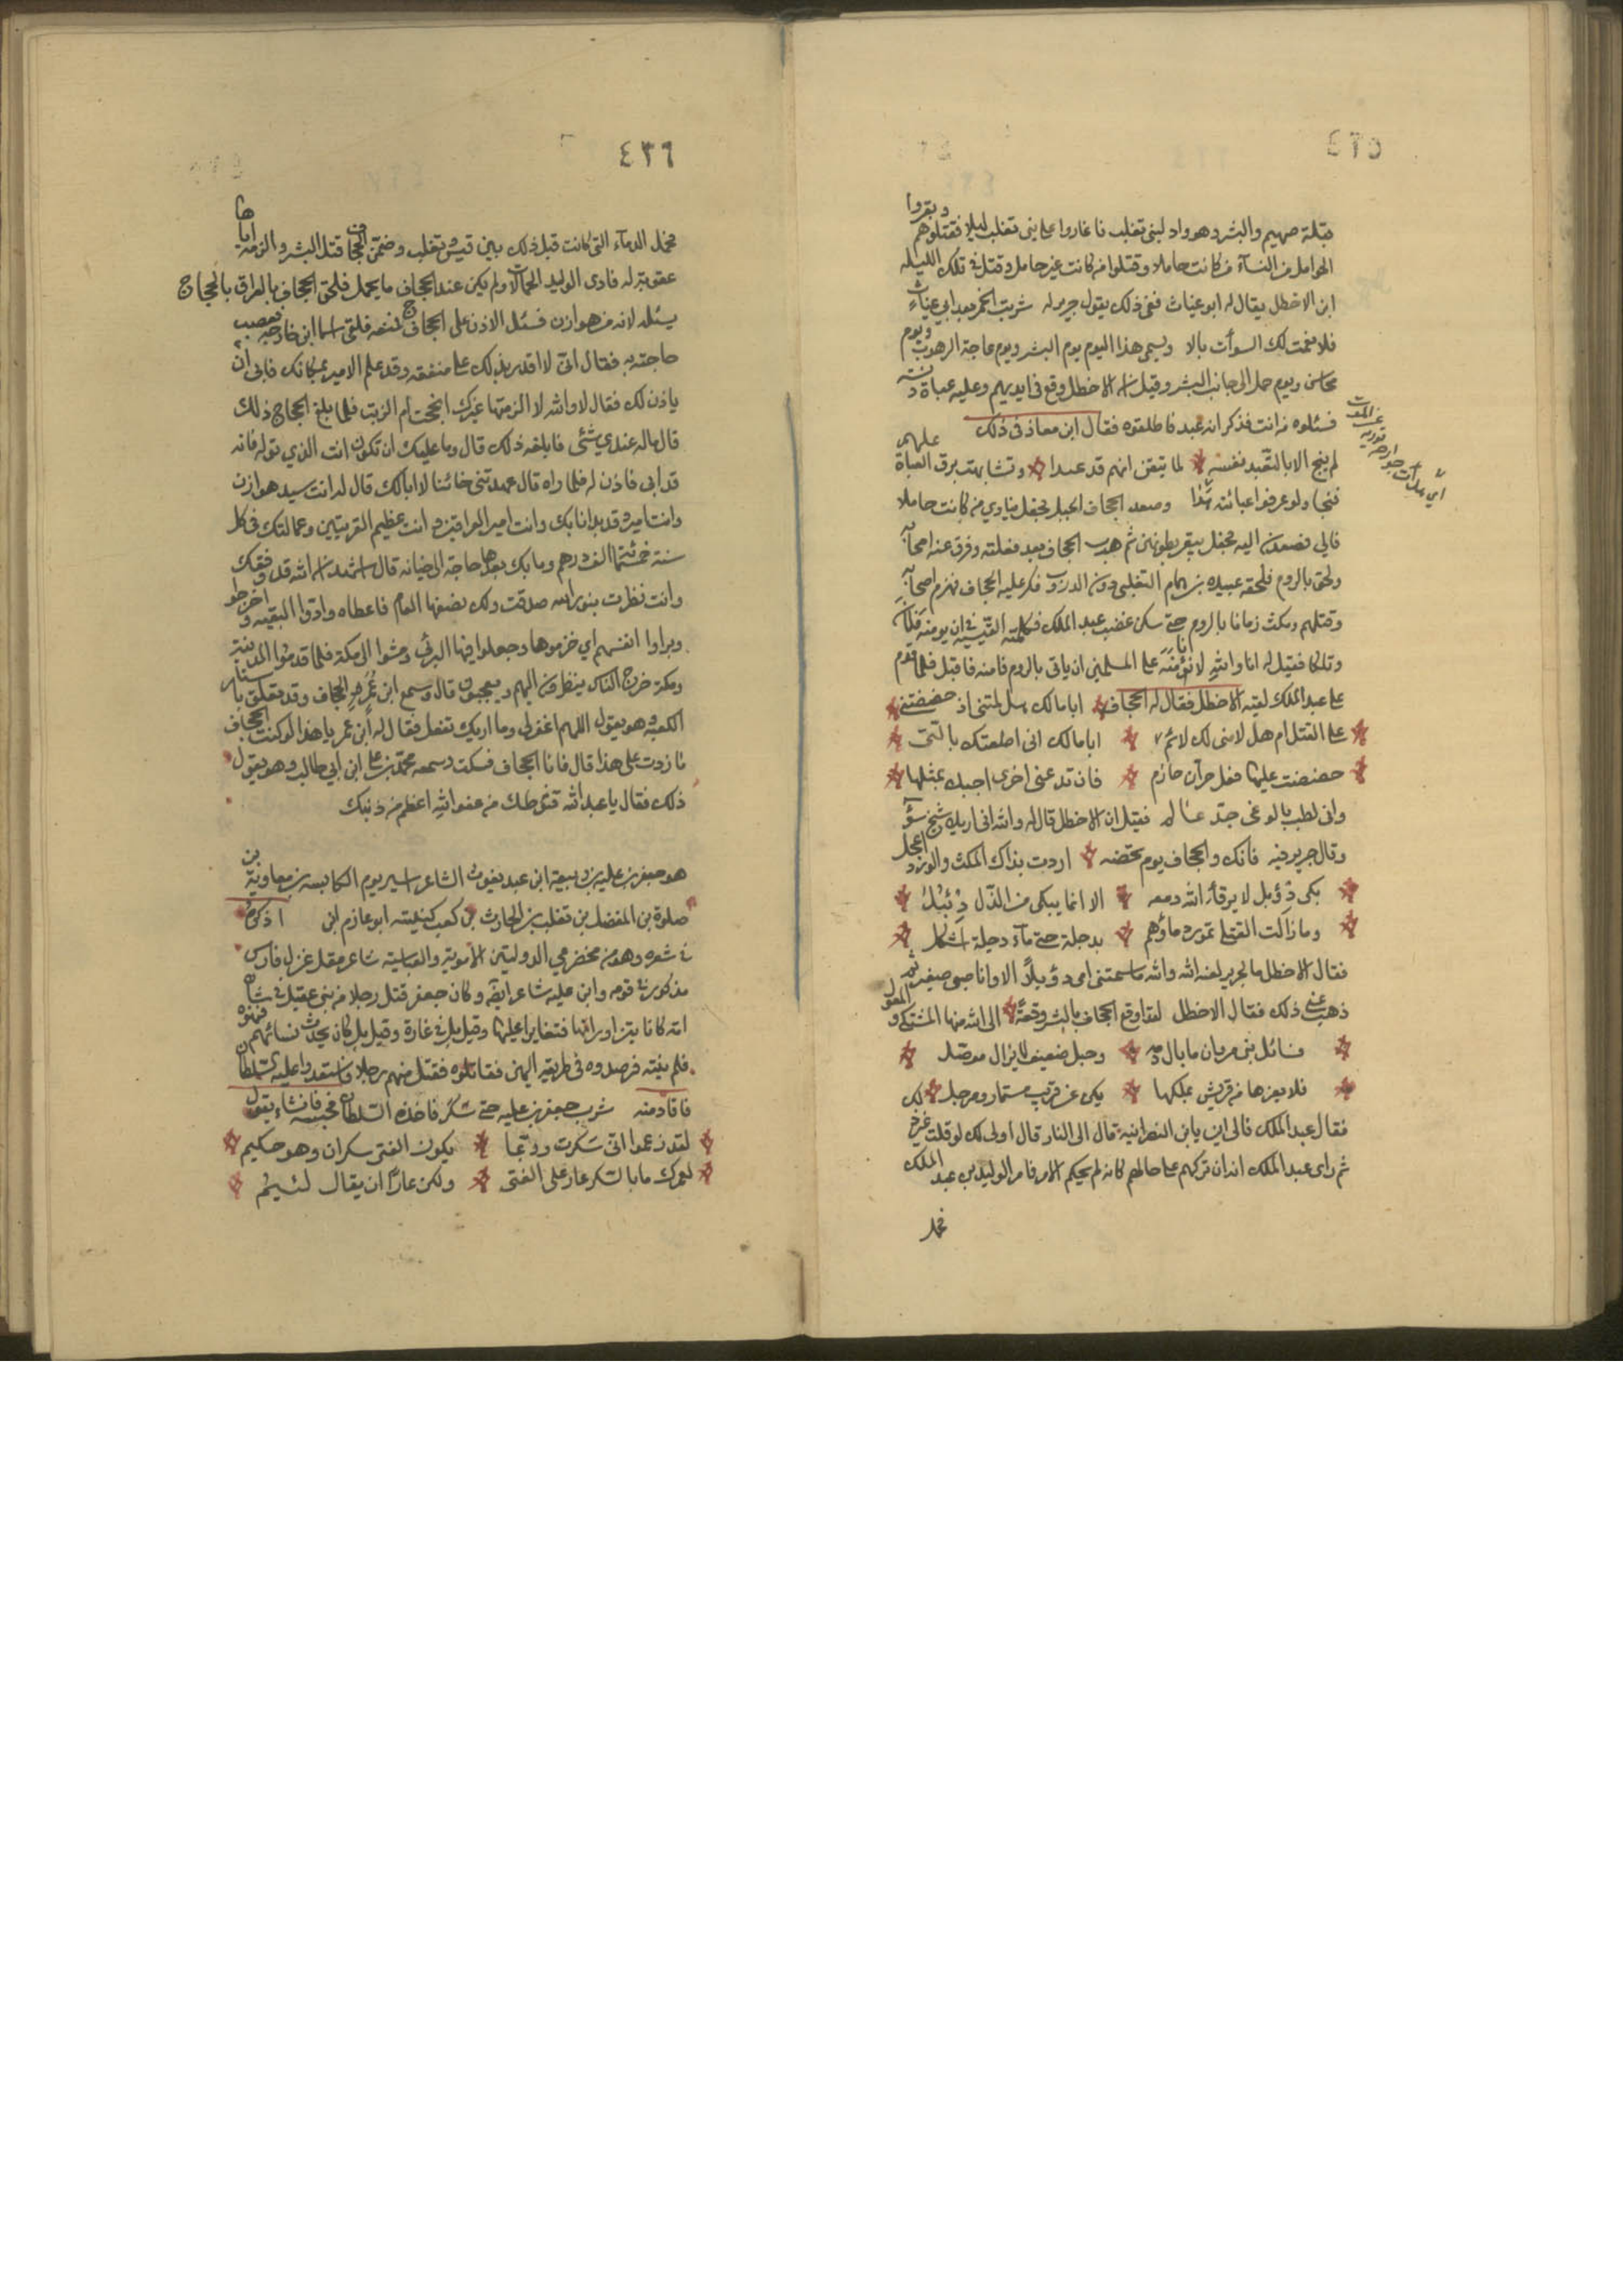 ٤٣٥
وبقروا
قبلة صهيم والبشر وهو واد لبنى تغلب فاغاروا على بنى تغلب ليلا فقتلوهم
الحوامل من النسآء من كانت حاملا وقتلوا من كانت غير حامل وقتل فى تلك الليلة
ابن الاخطل يقال له ابو غياث ففى ذلك يقول جرير له شربت الخمر بعد ابى غياث
فلا نعمت لك السوأت بالا ويسمى هذا اليوم يوم البشر ويوم عاجنة الرهوب ويوم
مخاشن ويوم حمل الى جانب البشر وقيل ان الاخطل وقع فى ايديهم وعليه عباة دنسة
فسئلوه من انت فذكر انه عبد فاطلقوه فقال ابن معاذ فى ذلك
لم ينج الا بالتعبد نفسه لما تيقن انهم قد عبدا وتشابهت برق العباة عليهم
فنجا ولو عرفوا عبائته هذا وصعد الجحاف الجبل فجعل ينادي من كانت حاملا
فالى فصعدن اليه فجعل يبقر بطونهن ثم هرب الجحاف بعد فعلته وفرق عنه اصحابه
ولحق بالروم فلحقه عبيدة بن همام التغلبى دون الدروب فكر عليه الجحاف فهزم اصحابه
وقتلهم ومكث زمانا بالروم حتى سكن غضب عبد الملك فكلمته القيسية فى ان يومنه فلان
وتلكا فقيل له انا والله لا نؤمنه على المسلمين ان ياتى بالروم فامنه فاقبل فلما قدم
على عبد الملك لقيه الاخطل فقال له الجحاف ابا مالك هل لمتنى اذ حضضتنى
على القتل ام هل لامنى لك لائم ابا مالك انى اطعتك بالتى
حضضت عليها فعل حران حازم فان تدعنى اخرى اجبك بمثلها
وانى لطب بالوغى جد عالم فقيل ان الاخطل قال له والله انى اريك شيخ سوء
وقال جرير فيه فانك والجحاف يوم تحضه اردت بذاك المكث والورد اعجل
بكى دوبل لا يرقأ الله دمعه الا انما يبكى من الذل دوبل
وما زالت القتلى تمور دماؤهم بدجلة حتى مآء دجلة اشكل
فقال الاخطل ما لجرير لعنه الله والله ما سمتنى امى دوبلا الا وانا صبى صغير ثم
ذهب عنى ذلك فقال الاخطل لقد اوقع الجحاف بالبشر وقعة الى الله منها المشتكى والمعول
فسائل بنى مروان ما بال ذمة وحبل ضعيف لا يزال موصل
فلا يغيرها من قريش بملكها يكن عن قريب مستمار ومرحل لك
فقال عبد الملك فالى اين يا بن النصرانية قال الى النار قال اولى لك لو قلت غير
ثم راى عبد الملك انه ان تركهم على حالهم كانه لم يحكم الامر فامر الوليد بن عبد الملك
فحمل
٤٣٦
فحمل الدمآء التى كانت قبل ذلك بين قيس وتغلب وضمن الجحاف قتل البشر والزمه اياها
عقوبة له فادى الوليد الحمالات ولم يكن عند الجحاف ما يحمل فلحق الجحاف بالعراق بالحجاج
يسئله لانه من هوازن فسئل الاذن على الحجاج فمنعه فلقى اسما ابن خارجة فعصب
حاجته به فقال انى لا اقدر بذلك على منفعة وقد علم الامير بمكانك فابى ان
ياذن لك فقال لا والله لا الزمتها غيرك انجحت ام اكديت فلما بلغ الحجاج ذلك
قال ماله عندي شئى فابلغه ذلك قال وما عليك ان تكون انت الذي توله فانه
قد ابى فاذن له فلما راه قال عهدتنى خائنا لا ابالك قال له انت سيد هوازن
وانت امير وقد بدانا بك وانت امير العراقين وانت عظيم القريتين وعمالتك فى كل
سنة خمسمائة الف درهم وما بك بعدها حاجة الى خيانة قال اشهد ان الله قد وفقك
وانت نظرت بنور الله صدقت ولك نصفها العام فاعطاه وادوا البقية واخرجوا
وبراوا انفسهم اي خزموها وجعلوا فيها البرئ ومشوا الى مكة فلما قدموا المدينة
ومكة خرج الناس ينظرون اليهم ويعجبون قال وسمع ابن عمر الجحاف وقد تعلق باستار
الكعبة وهو يقول اللهم اغفر لى وما اريك تفعل فقال له ابن عمر يا هذا لو كنت الجحاف
ما زدت على هذا قال فانا الجحاف فسكت وسمعه محمد بن على ابن ابى طالب وهو يقول
ذلك فقال يا عبد الله قنوطك من عفو الله اعظم من ذنبك
هو جعفر بن علبة بن ربيعة ابن عبد يغوث الشاعر اسير يوم الكلاب ابن معاوية بن
صلاة بن المفضل بن تغلب بن الحارث بن كعب كنيته ابو عارم لابن اذكره
فى شعره وهو من مخضرمي الدولتين الاموية والعباسية شاعر مقل غزل فارس
مذكور فى قومه وابن علبة شاعر ايضا وكان جعفر قتل رجلا من بنى عقيل فى شان
امة كانا يتزاورانها فتغايرا عليها وقيل بل فى غارة وقيل بل كان يحدث نسائهم فنهوه
فلم ينته فرصدوه فى طريقه اليهن فقاتلوه فقتل منهم رجلا فاستعدوا عليه السلطان
فاقاد منه شرب جعفر بن علبة حتى سكر فاخذه السلطان فحبسه فانشاء يقول
لقد زعموا انى سكرت وربما يكون الفتى سكران وهو حكيم
لعمرك ما بالسكر عار على الفتى ولكن عارا ان يقال لئيم